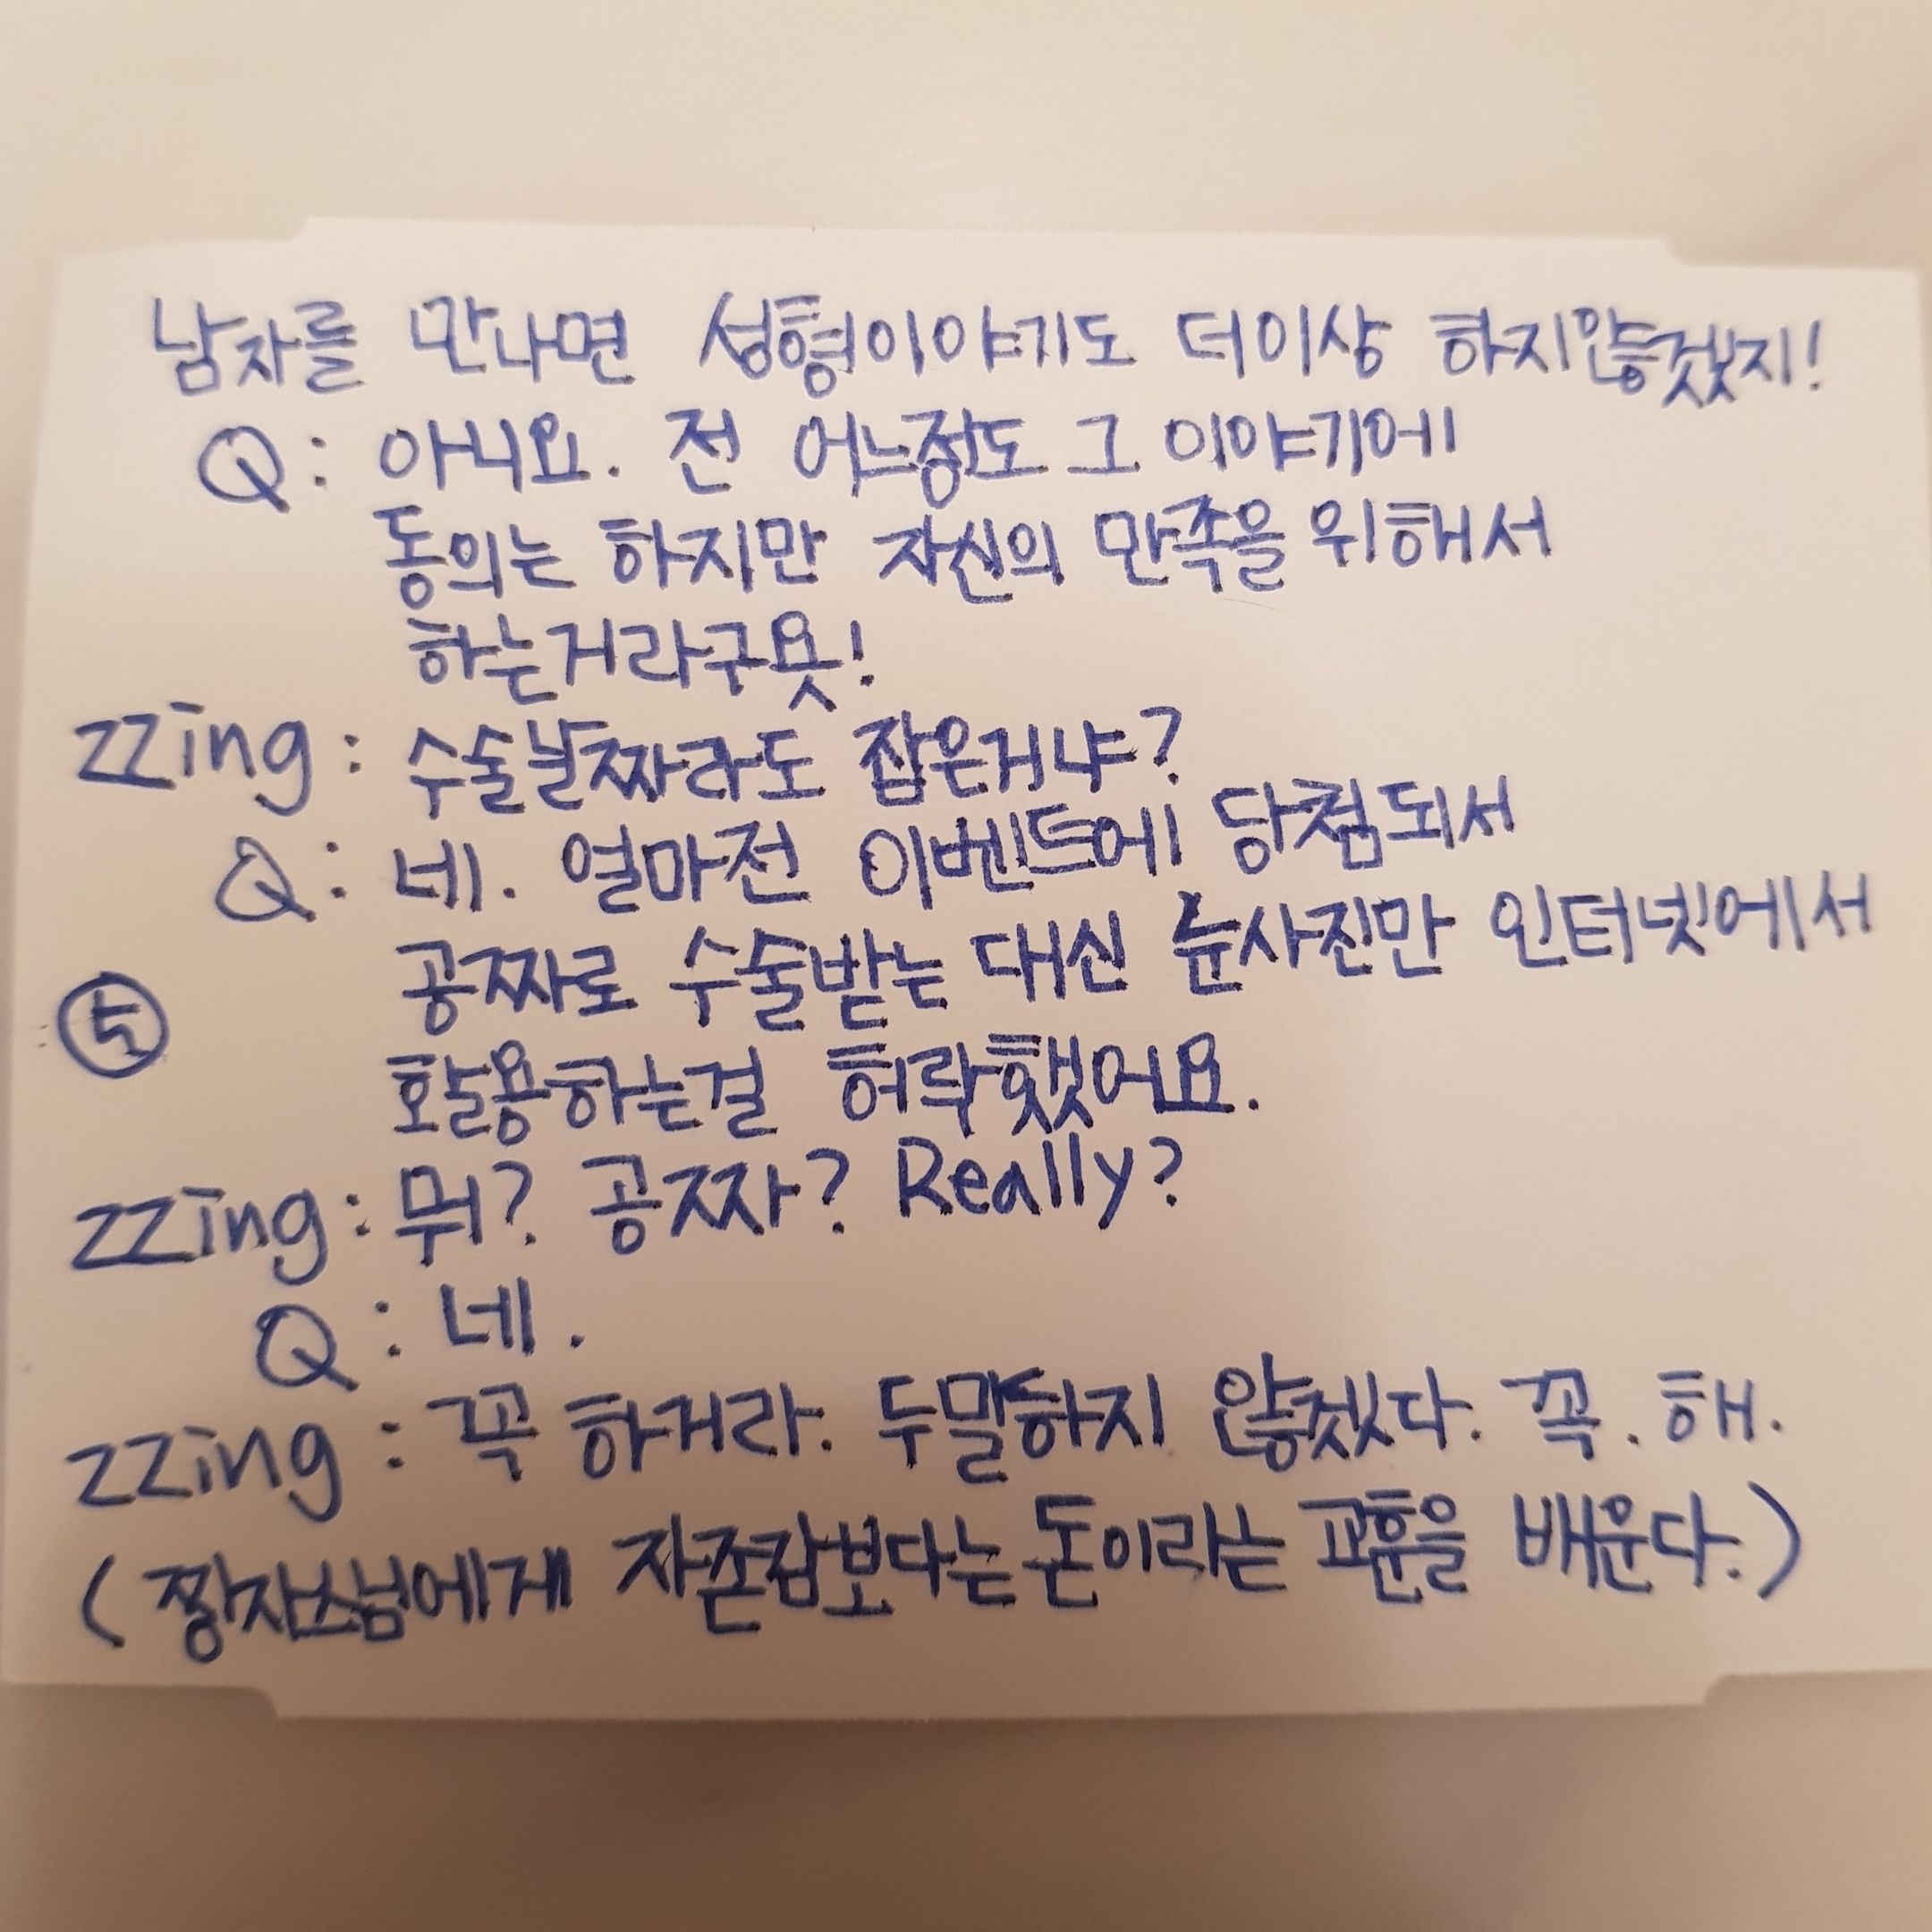 남자를 만나면 성형이야기도 더이상 하지않겠지!
Q : 아니요. 전 어느정도 그 이야기에
동의는 하지만 자신의 만족을 위해서
하는거라구욧!
zzing : 수술날짜라도 잡은거냐?
Q : 네. 얼마전 이벤트에 당첨되서
공짜로 수술받는 대신 눈사진만 인터넷에서
⑤ 활용하는걸 허락했어요.
zzing : 뭐? 공짜? Really?
Q : 네.
zzing : 꼭 하거라. 두말하지 않겠다. 꼭. 해.
(짱자스님에게 자존감보다는 돈이라는 교훈을 배운다.)